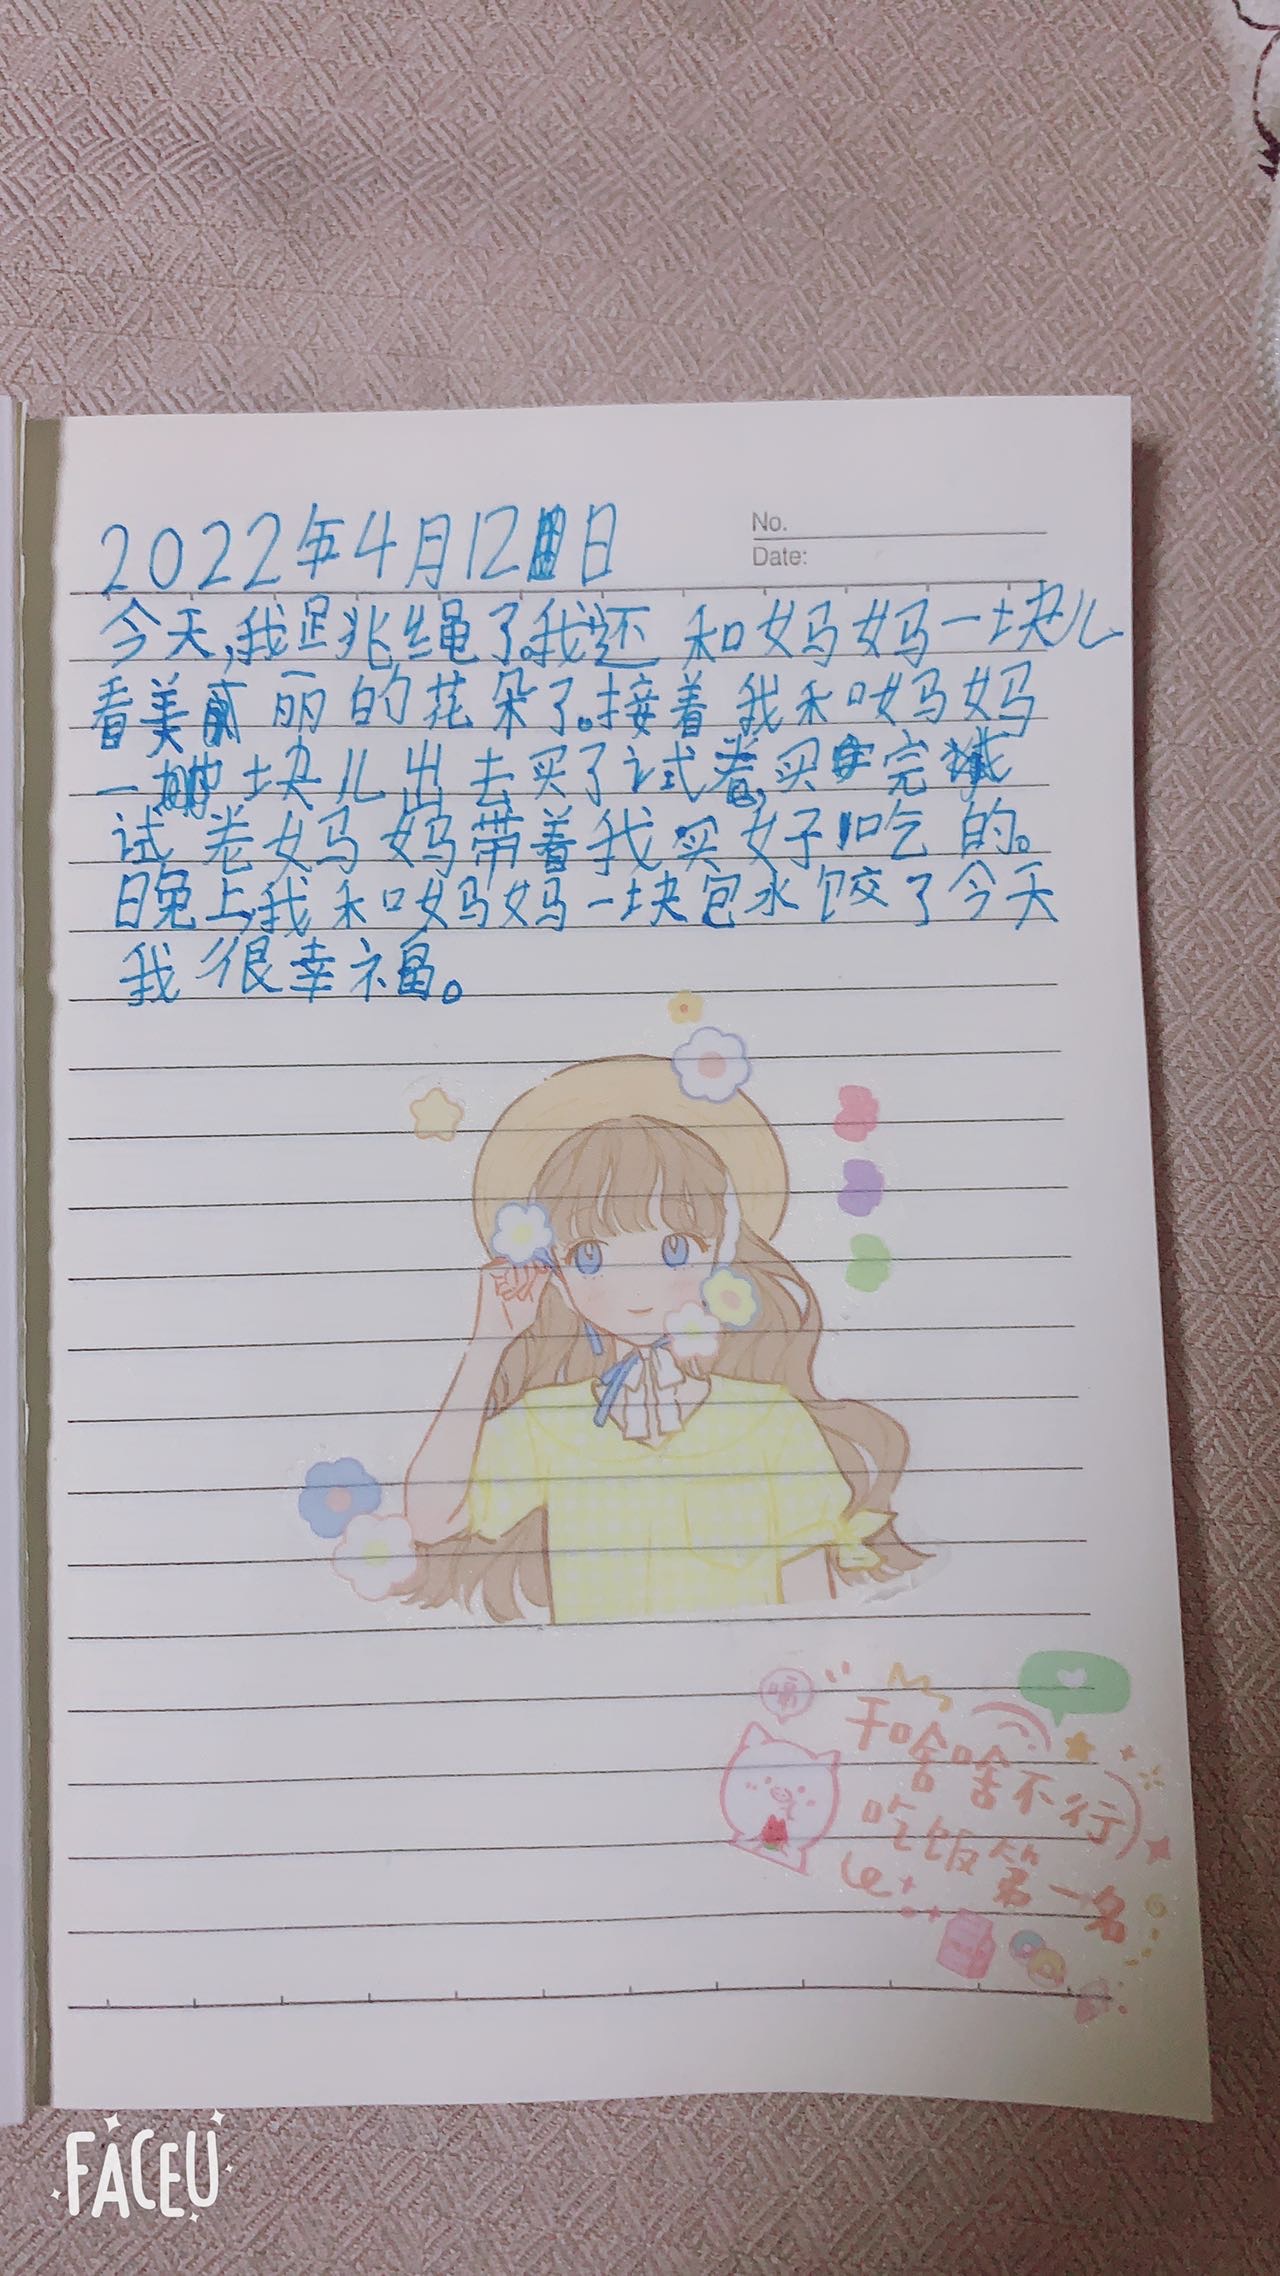 No.
Date:
2022年4月12日
今天,我跳绳了。我还和妈妈一块儿
看美丽的花朵了。接着我和妈妈
一块儿出去买了试卷,买完
试卷妈妈带着我买好吃的。
晚上,我和妈妈一块包水饺了今天
我很幸福。
嗝
干啥啥不行
吃饭第一名
FACEU